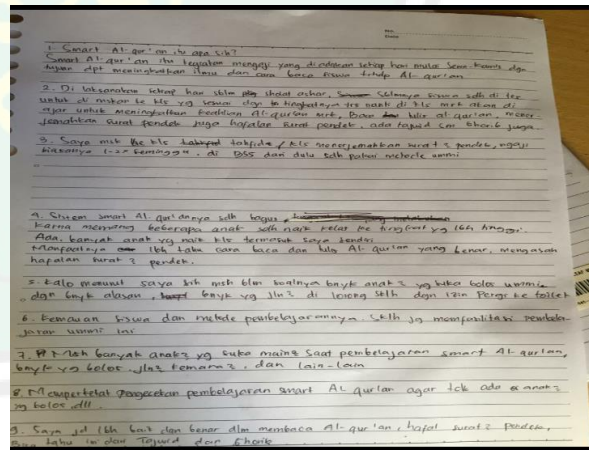 No.
1. Smart Al-qur'an itu apa sih?
Smart Al-qur'an itu kegiatan mengaji yang diadakan setiap hari mulai senin-kamis dgn
tujuan dpt meningkatkan ilmu dan cara baca siswa tithdp Al-qur'an
2. Di laksanakan setiap hari sblm sholat ashar, semua siswa sdh di
untut di msk an ke kls yg sesuai dgn tingkatnya trs nanti di kls mrk akan di
ajar untuk meningkatkan keahlian Al-qur'an mrk, baca tulis al-qur'an, mener-
jemahkan surat pendek juga hafalan surat pendek, ada tajwid sm ghorib juga.
3. Saya msk kls tahfidz / kls menerjemahkan surat2 pendek, ngaji
biasanya 1-2x seminggu, di BSS dari dulu sdh pakai metode ummi
4. Sistem smart Al-qur'annya sdh bagus,
karna memang beberapa anak sdh naik kelas ke tingkat yg lbh tinggi.
Ada, banyak anak yg naik kls termasuk saya sendiri
Manfaatnya lbh tahu cara baca dan tulis Al-qur'an yang benar, mengasah
hafalan surat2 pendek.
5. Kalo menurut saya sih msh blm soalnya bnyk anak2 yg suka bolos ummi
dgn bnyk alasan, bnyk yg jln2 di lorong sklh dgn izin pergi ke toilet
6. Kemauan siswa dan metode pembelajarannya. Sklh jg memfasilitasi pembela-
jaran ummi ini
7. Msh banyak anak2 yg suka main2 saat pembelajaran smart Al-qur'an,
bnyk yg bolos jln2 kemana2, dan lain-lain
8. Memperketat pengecekan pembelajaran smart Al-qur'an agar tdk ada anak2
yg bolos dll.
9. Saya jd lbh baik dan benar dlm membaca Al-qur'an, hafal surat2 pendek,
tahu dan Tajwid dan Ghorib